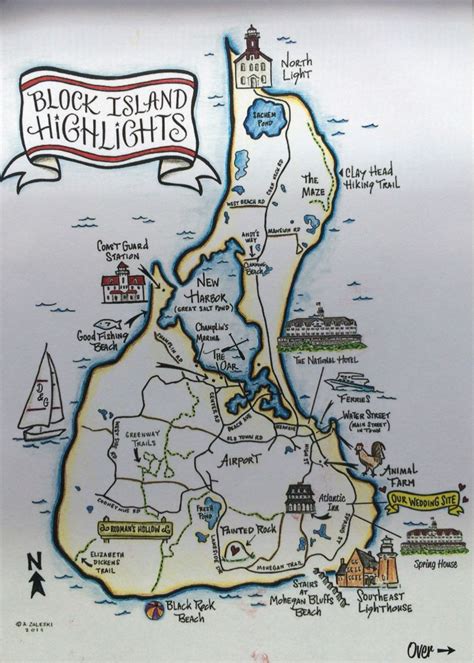 BLOCK ISLAND
HIGHLIGHTS
NORTH
LIGHT
SACHEM
POND
CLAY HEAD
HIKING TRAIL
THE
MAZE
CORN NECK RD
WEST BEACH RD
MANSION RD
ANDY'S
WAY
COAST GUARD
STATION
CHARLESTOWN
BEACH
NEW
HARBOR
(GREAT SALT POND)
CHAMPLIN'S
MARINA
THE
OAR
GOOD FISHING
BEACH
CHAMPLIN RD
THE NATIONAL HOTEL
FERRIES
WATER STREET
(MAIN STREET
IN TOWN)
D&G
CENTER RD
BEACH AVE
OLD TOWN RD
GREENWAY
TRAILS
AIRPORT
ANIMAL
FARM
OUR WEDDING SITE
ATLANTIC
INN
SPRING ST
SPRING HOUSE
COONEYMUS RD
FRESH
POND
PAINTED ROCK
LAKESIDE DR
RODMAN'S HOLLOW
MOHEGAN TRAIL
ELIZABETH
DICKENS
TRAIL
STAIRS
AT
MOHEGAN BLUFFS
BEACH
SOUTHEAST
LIGHTHOUSE
N
BLACK ROCK
BEACH
© A. ZALESKI
2011
OVER →